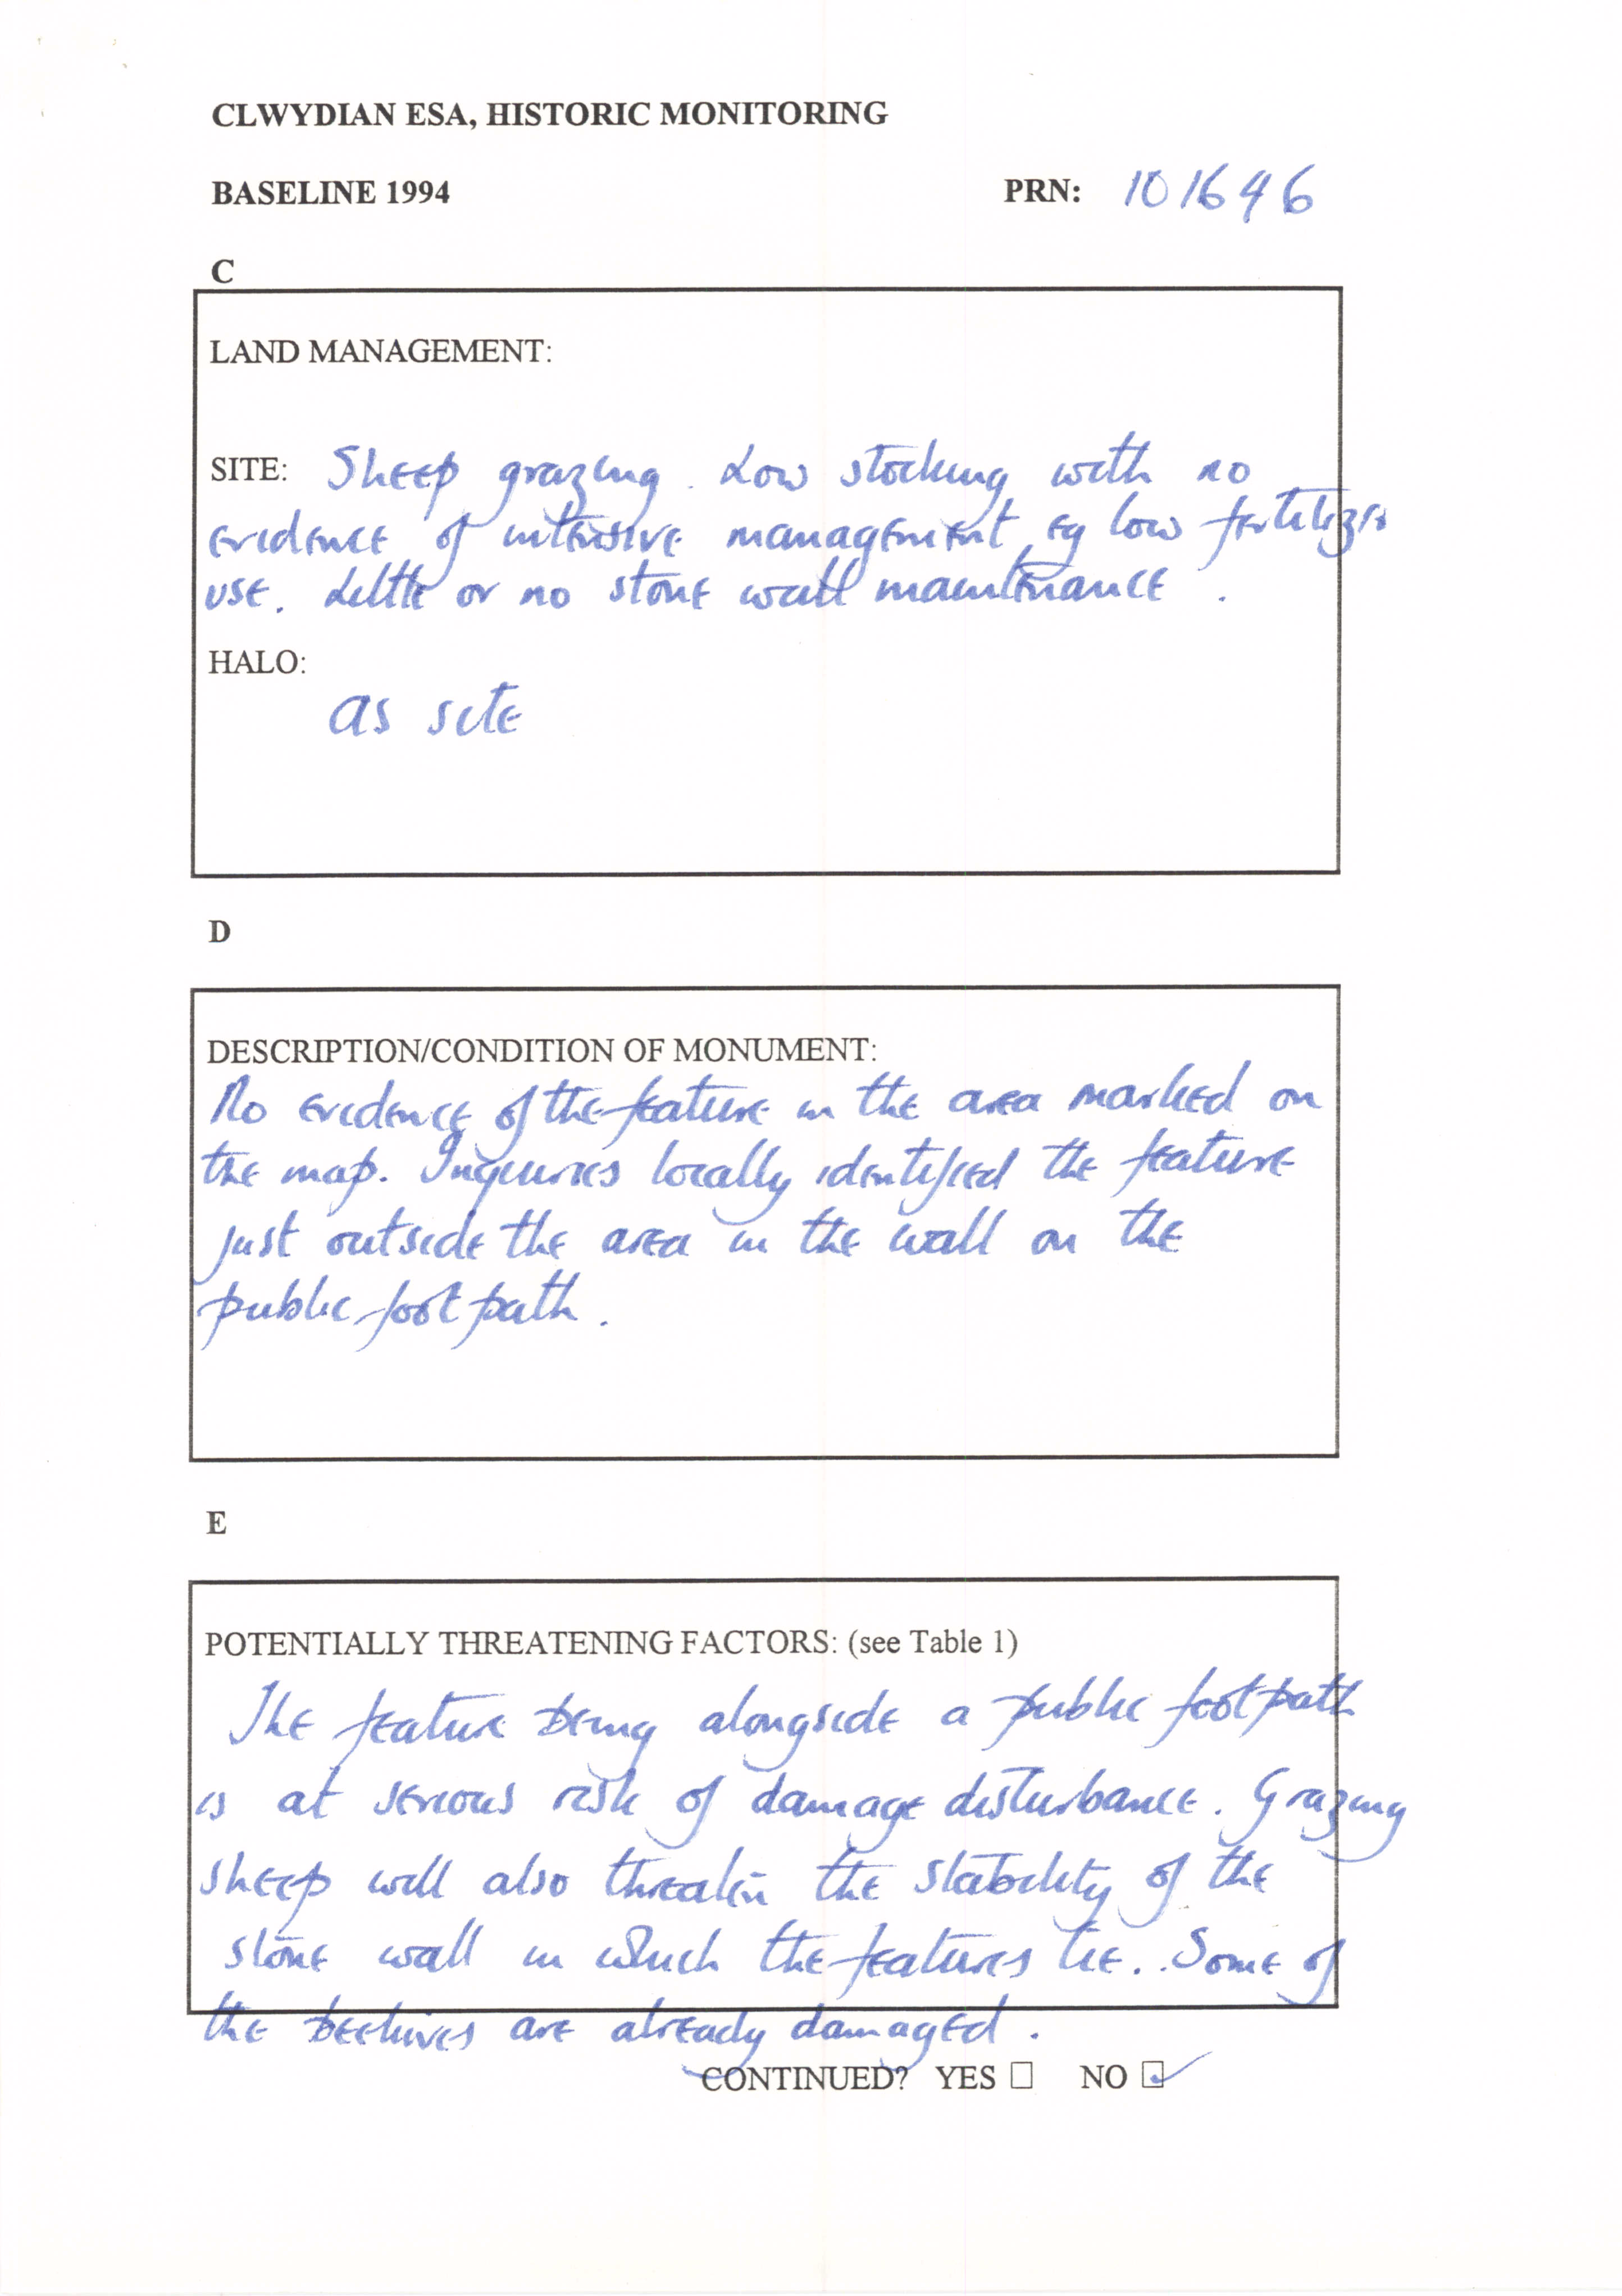 CLWYDIAN ESA, HISTORIC MONITORING
BASELINE 1994 PRN: 101646
C
LAND MANAGEMENT:
SITE: Sheep grazing. Low stocking with no
evidence of intensive management eg low fertilizer
use. Little or no stone wall maintenance.
HALO:
as site
D
DESCRIPTION/CONDITION OF MONUMENT:
No evidence of the feature in the area marked on
the map. Inquiries locally identified the feature
just outside the area in the wall on the
public footpath.
E
POTENTIALLY THREATENING FACTORS: (see Table 1)
The feature being alongside a public footpath
is at serious risk of damage disturbance. Grazing
sheep will also threaten the stability of the
stone wall in which the features lie. Some of
the beehives are already damaged.
CONTINUED? YES ☐ NO ☑